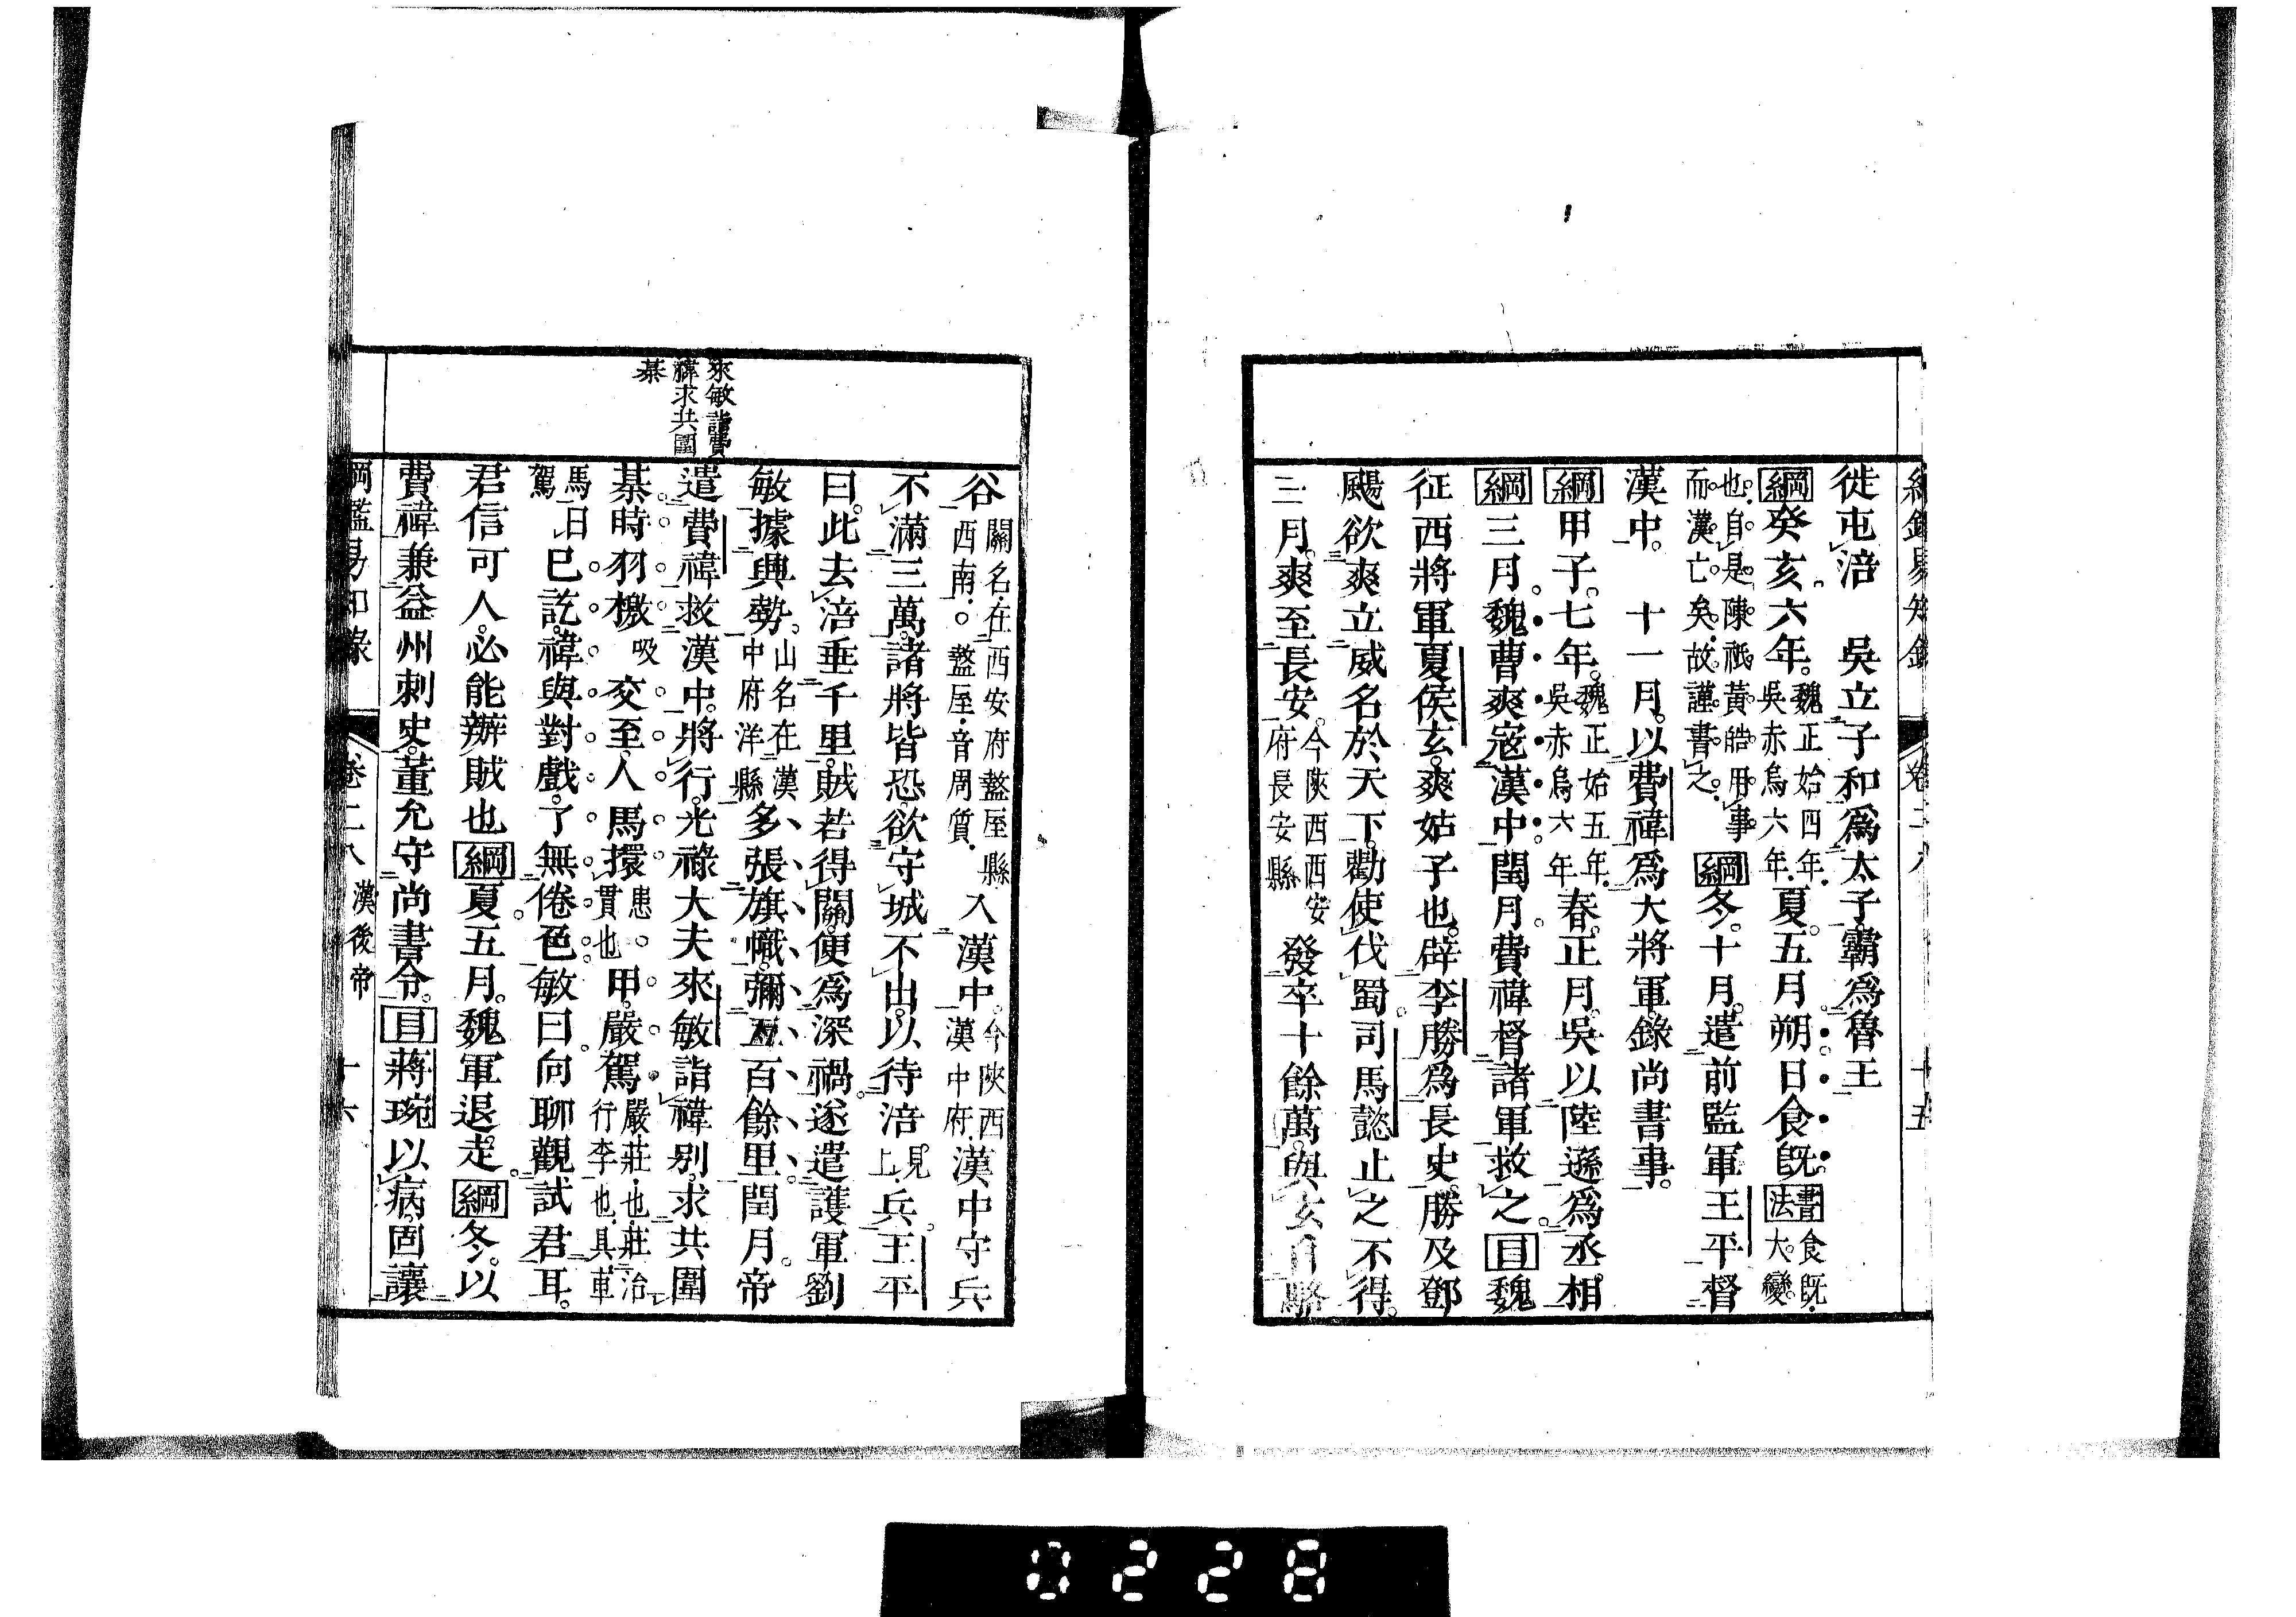 綱鑑易知錄 卷二八 十五
徙屯涪 吳立子和爲太子霸爲魯王
綱癸亥六年魏正始四年吳赤烏六年夏五月朔日食旣書法食旣大變
也自是陳祗黃皓用事而漢亡矣故謹書之綱冬十月遣前監軍王平督
漢中 十一月以費禕爲大將軍錄尚書事
綱甲子七年魏正始五年吳赤烏六年春正月吳以陸遜爲丞相
綱三月魏曹爽寇漢中閏月費禕督諸軍救之目魏
征西將軍夏侯玄爽姑子也辟李勝爲長史勝及鄧
颺欲爽立威名於天下勸使伐蜀司馬懿止之不得
三月爽至長安今陝西西安府長安縣發卒十餘萬與玄自駱
谷關名在西安府盩厔縣西南○盩厔音周質入漢中今陝西漢中府漢中守兵
不滿三萬諸將皆恐欲守城不出以待涪見上兵王平
曰此去涪垂千里賊若得關便爲深禍遂遣護軍劉
敏據興勢山名在漢中府洋縣多張旗幟彌亙百餘里閏月帝
來敏詣費禕求共圍棊
遣費禕救漢中將行光祿大夫來敏詣禕別求共圍
棊時羽檄吸交至人馬擐患貫也甲嚴駕嚴莊也莊治行李也具車
馬曰駕已訖禕與對戲了無倦色敏曰向聊觀試君耳
君信可人必能辦賊也綱夏五月魏軍退走綱冬以
費禕兼益州刺史董允守尚書令目蔣琬以病固讓
綱鑑易知錄 卷二八 漢後帝 十六
0228